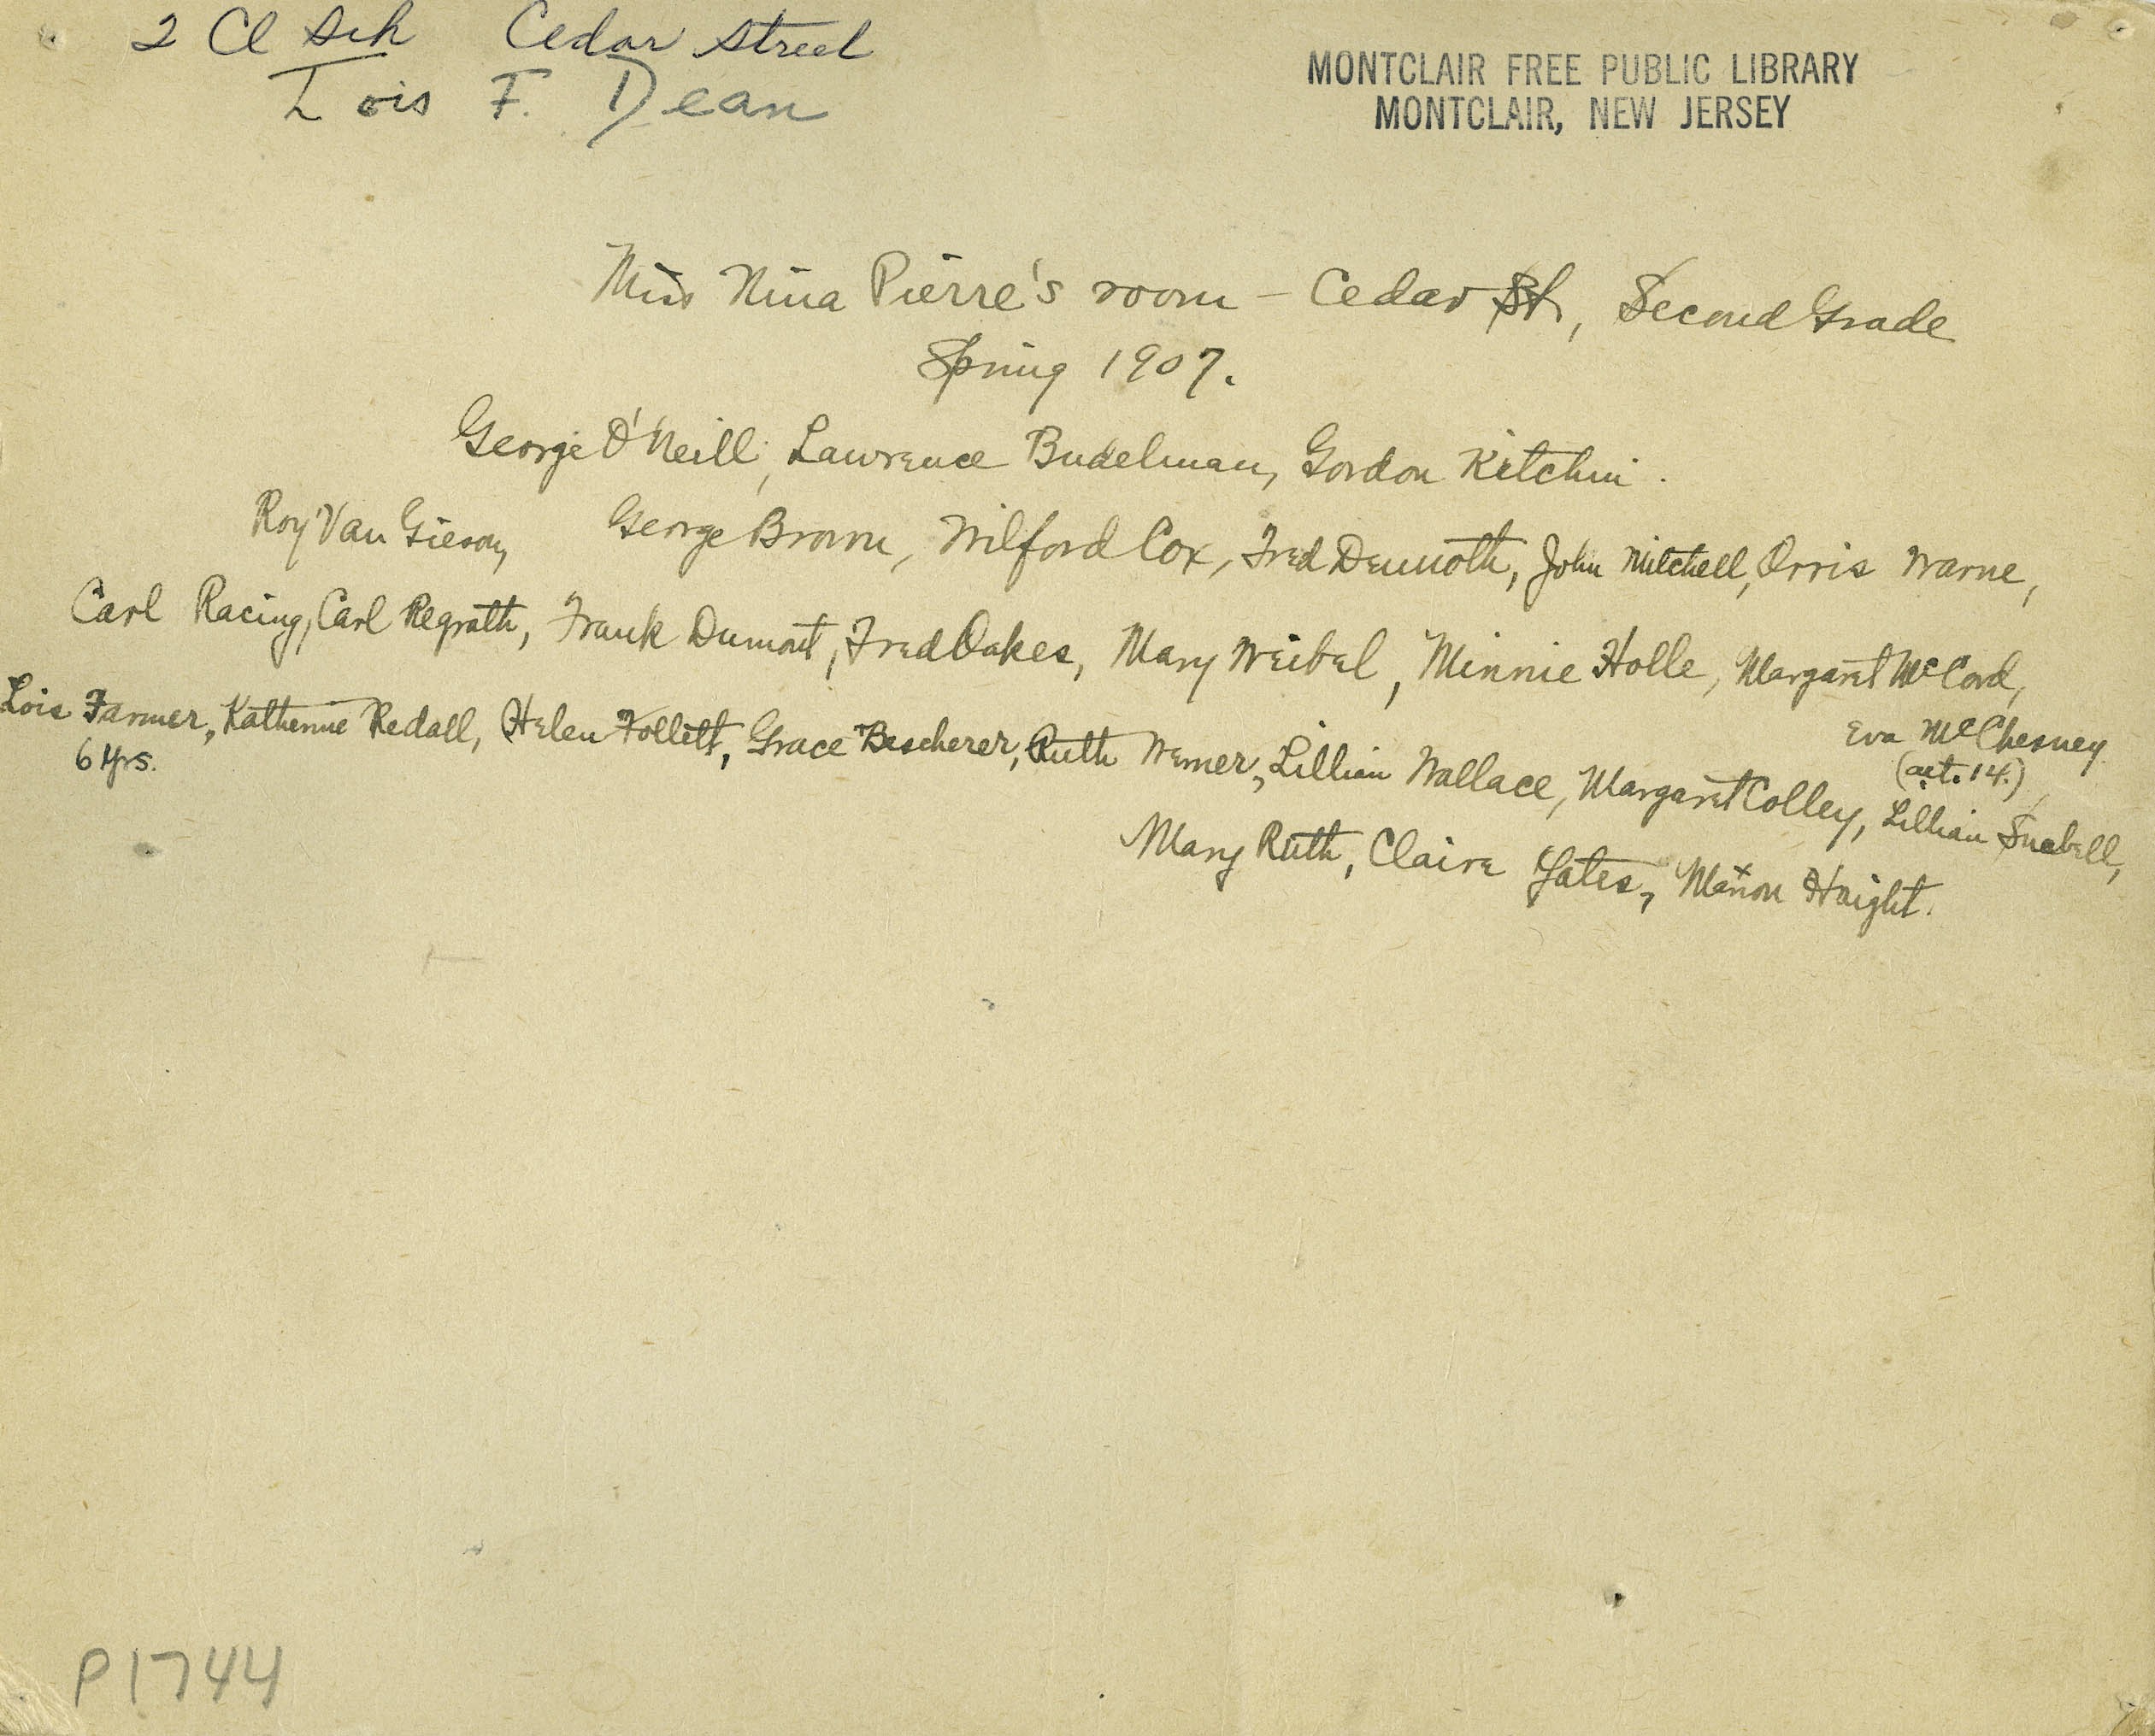 2 Cl Sch Cedar Street
Lois F. Dean
MONTCLAIR FREE PUBLIC LIBRARY
MONTCLAIR, NEW JERSEY
Miss Nina Pierre's room - Cedar St, Second Grade
Spring 1907.
George O'Neill, Lawrence Budelman, Gordon Kitchin.
Roy Van Gieson, George Brown, Wilford Cox, Fred Demuoth, John Mitchell, Orris Warne,
Carl Racing, Carl Regrath, Frank Dumont, Fred Oakes, Mary Weibel, Minnie Holle, Margaret McCord,
Eva McChesney
(aet. 14.)
Lois Farmer, Katherine Redall, Helen Follett, Grace Bescherer, Ruth Werner, Lillian Wallace, Margaret Colley, Lillian Snebell,
6 yrs.
Mary Ruth, Claire Yates, Marion Haight.
P1744